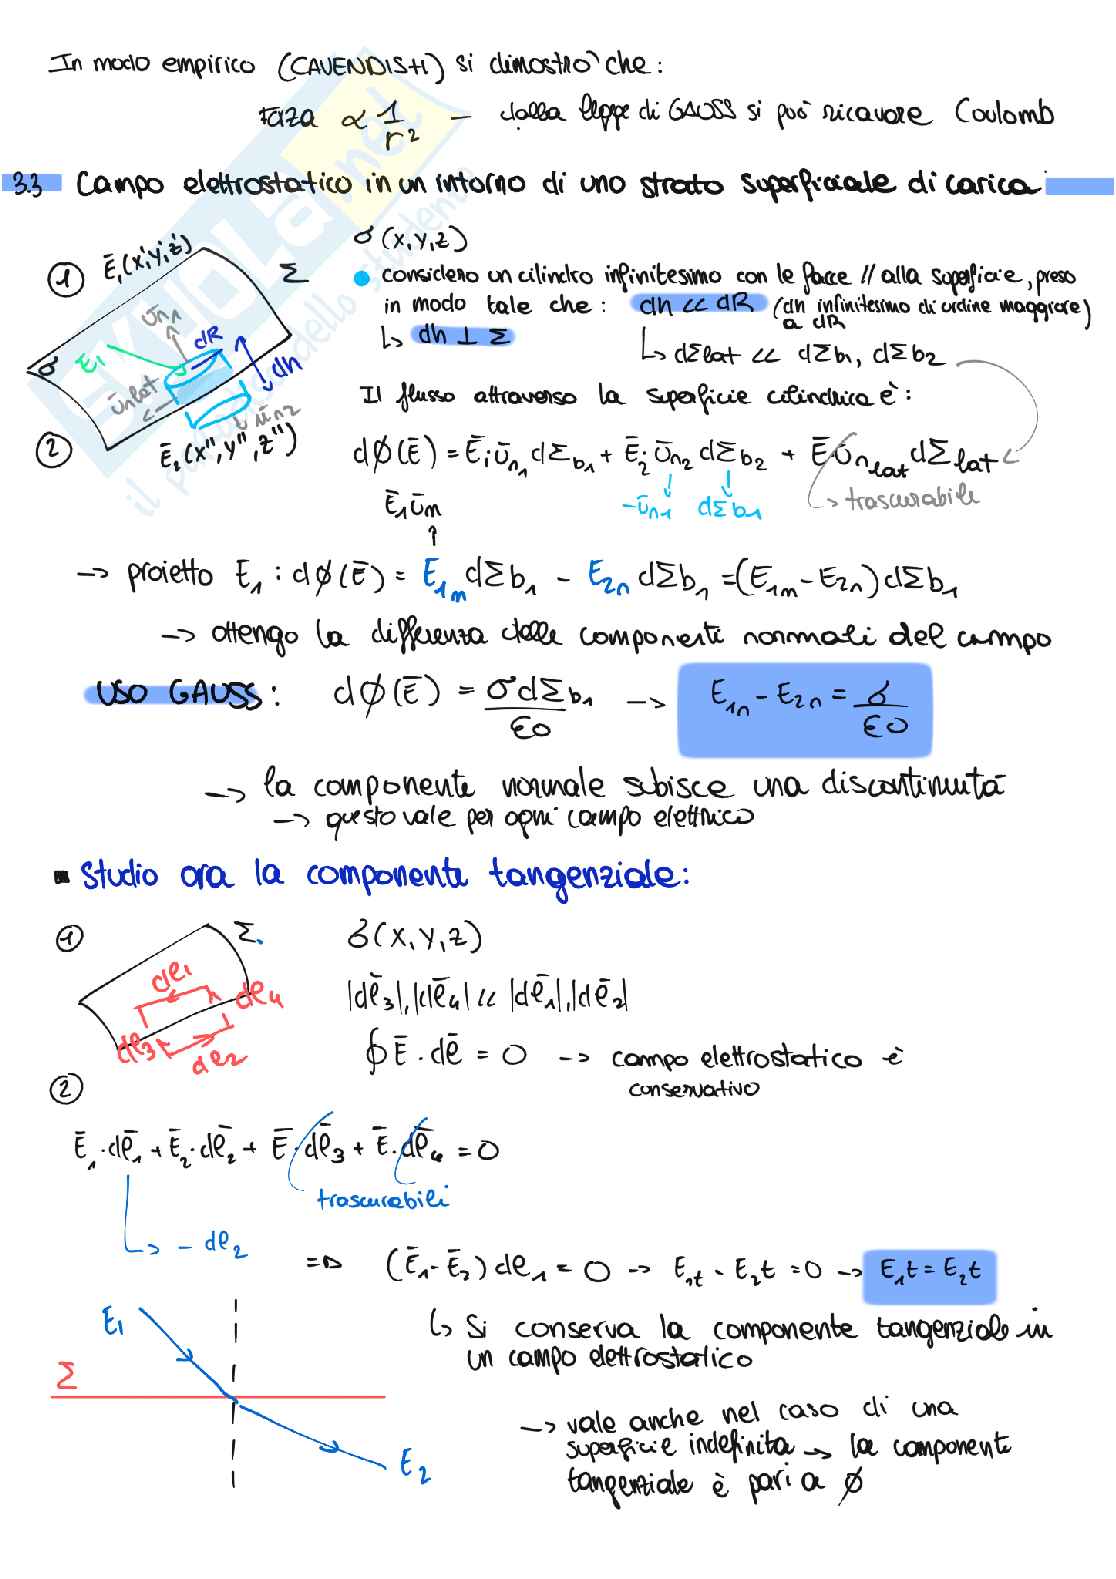 In modo empirico (CAVENDISH) si dimostrò che:
Forza ∝ 1/r² — dalla legge di GAUSS si può ricavare Coulomb
3.3 Campo elettrostatico in un intorno di uno strato superficiale di carica
σ(x,y,z)
① Ē₁(x',y',z') Σ
• considero un cilindro infinitesimo con le facce // alla superficie, preso
in modo tale che: dh << dR (dh infinitesimo di ordine maggiore)
a dR
↳ dh ⊥ Σ ↳ dΣlat << dΣb₁, dΣb₂
ūn₁ dR E₁ σ dh ūnlat ūn₂
② Ē₂(x'',y'',z'')
Il flusso attraverso la superficie cilindrica è:
dϕ(Ē) = Ē₁ūn₁dΣb₁ + Ē₂ūn₂dΣb₂ + Ēūnlat dΣlat
-ūn₁ dΣb₁ -> trascurabile
Ē₁ūn
-> proietto E₁ : dϕ(Ē) = E₁n dΣb₁ - E₂n dΣb₁ = (E₁n - E₂n)dΣb₁
-> ottengo la differenza delle componenti normali del campo
USO GAUSS: dϕ(Ē) = σdΣb₁/ε0 -> E₁n - E₂n = σ/ε0
-> la componente normale subisce una discontinuità
-> questo vale per ogni campo elettrico
▪ Studio ora la componente tangenziale:
① Σ σ(x,y,z)
dl₁ dl₄ dl₃ dl₂
|dl̄₃|,|dl̄₄| << |dl̄₁|,|dl̄₂|
∮Ē·dl̄ = 0 -> campo elettrostatico è
conservativo
②
Ē₁·dl̄₁ + Ē₂·dl̄₂ + Ē·dl̄₃ + Ē·dl̄₄ = 0
trascurabili
↳ - dl₂
=> (Ē₁-Ē₂)dl₁ = 0 -> E₁t - E₂t = 0 -> E₁t = E₂t
E₁
↳ Si conserva la componente tangenziale in
un campo elettrostatico
Σ
-> vale anche nel caso di una
superficie indefinita -> la componente
E₂
tangenziale è pari a ϕ